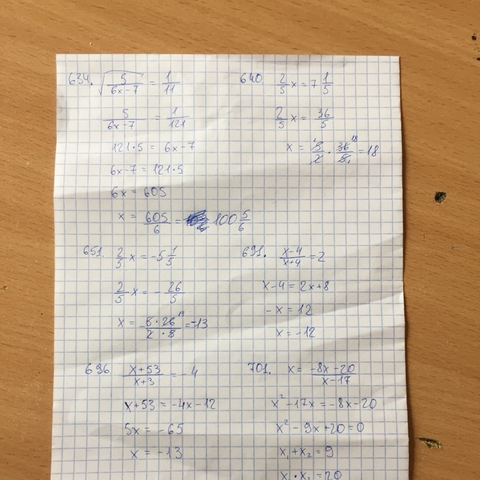 634. √(5/(6x-7)) = 1/11
5/(6x-7) = 1/121
121·5 = 6x-7
6x-7 = 121·5
6x = 605
x = 605/6 = 100 5/6
640. 2/5 x = 7 1/5
2/5 x = 36/5
x = 5/2 · 36/5 = 18
651. 2/5 x = -5 1/5
2/5 x = - 26/5
x = - 5·26/2·5 = -13
691. (x-4)/(x+4) = 2
x-4 = 2x+8
-x = 12
x = -12
696 (x+53)/(x+3) = -4
x+53 = -4x-12
5x = -65
x = -13
701. x = (-8x-20)/(x-17)
x²-17x = -8x-20
x²-9x+20=0
x₁+x₂=9
x₁·x₂=20